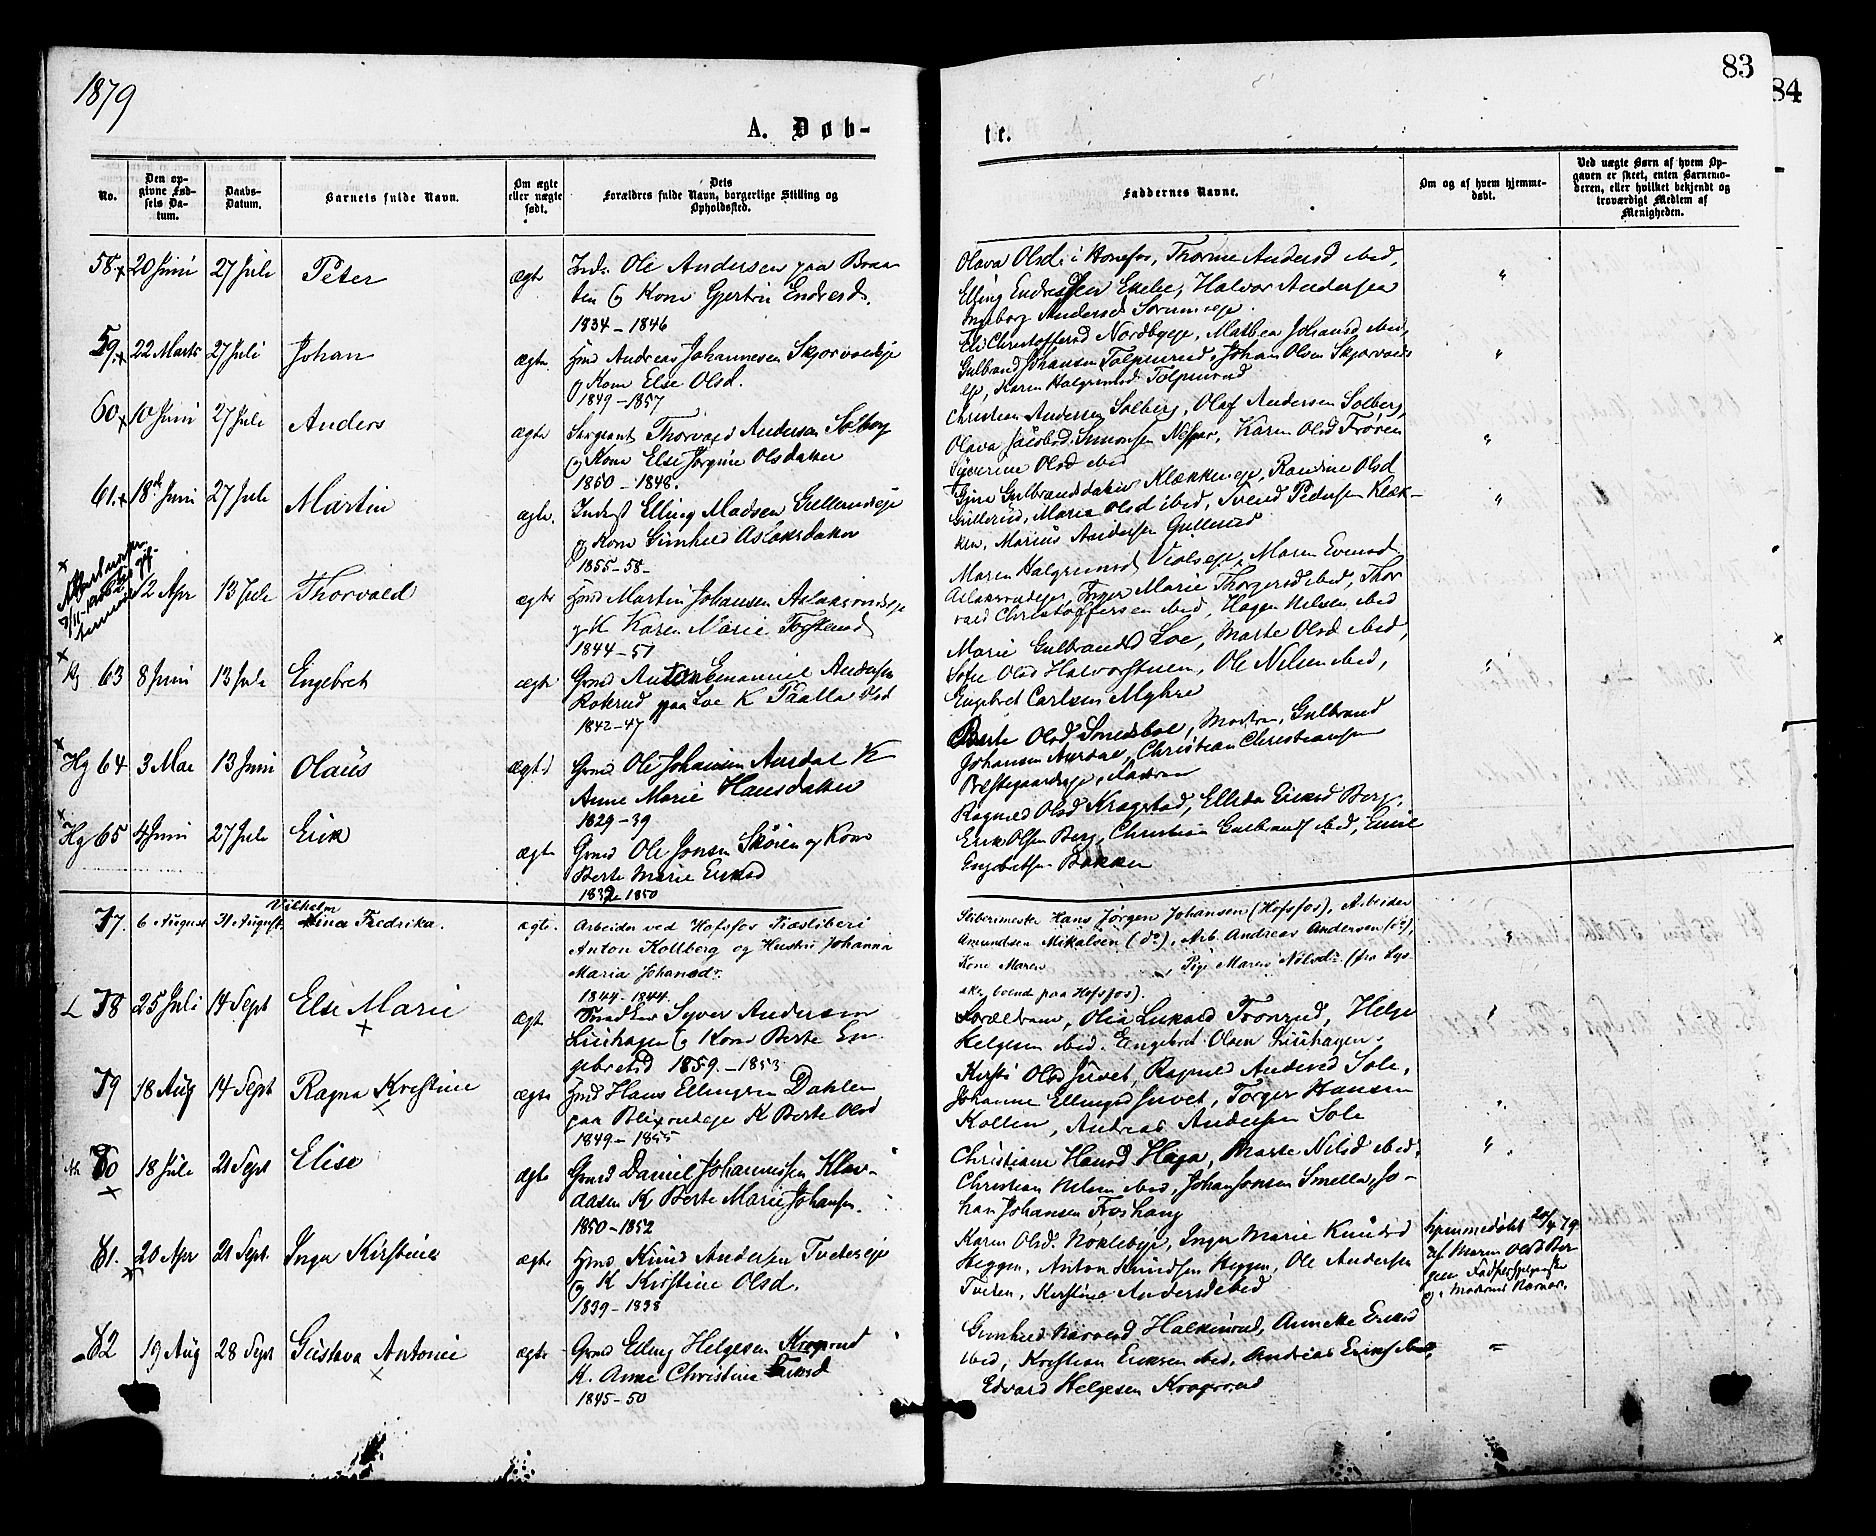 1879
83
84
A. Døb-
te.
No.
Den op-
givne Fød-
sels Da-
tum.
Daabs-
Datum.
Barnets fulde Navn.
Om ægte
eller uægte
født.
Dets
Forældres fulde Navn, borgerlige Stilling og
Opholdssted.
Faddernes Navne.
Om og af hvem hjemme-
døbt.
Ved uægte Børn af hvem Op-
gaven er skeet, enten Barnemo-
deren, eller hvilket bekjendt og
troværdigt Medlem af
Menigheden.
58. 20 Juni 27 Juli Peter ægte Inds. Ole Andersen paa Braa-
ten og Kone Gjertru Endresd.
1834 – 1846
Olava Olsd. i Hønefos, Thorine Andersd ibid,
Elling Endresen Ekebe, Halvor Andersen
Ingeborg Andersd
59. 22 Marts 27 Juli Johan ægte. Hmd Andreas Johannesen Skjørvoldeje
og Kone Else Olsd.
1849 – 1857
Eli Christoffersd Nordbyeje, Mathea Johansd ibid,
Gulbrand Johansen Tolpinrud, Johan Olsen Skjørvolds
eje, Karen Halgrimsd Tolpinrud
60. 10 Juni 27 Juli Anders ægte Sergeant Thorvald Andersen Solberg
og Kone Else Jørgine Olsdatter
1850 – 1848.
Christian Andersen Solberg, Olaf Andersen Solberg,
Olava Jacobsd. Simonsen Karen Olsd Frøien
Syverine Olsd ibid
61. 18de Juni 27 Juli Martin ægte. Inderst Elling Madsen Gullerudeje
og Kone Gunhild Aslaksdatter
1855 – 58 –
Guri Gulbrandsdatter Klækkeneje, Randine Olsd
Gullerud, Maria Olsd ibid, Svend Pedersen Klæk-
ken, Marius Andersen Gullerud
12 Apr 13 Juli Thorvald ægte Hmd Martin Johansen Aslaksrudeje
og K Karen Marie
1844 – 51
Maren Halgrimsd Violseje, Maren Evensd
Aslaksrudeje, Inger Marie Thorgersd ibid, Thor
vald Christoffersen ibid, Hagen Nilsen ibid
63 8 Juni 13 Juli Engebret ægte Grmd Anton Emanuel Andersen
Rokerud paa Loe K Olsd
1842 – 47
Marie Gulbrandsd Loe, Marte Olsd ibid,
Sofie Olsd Halvorstuen, Ole Nilsen ibid,
Engebret Carlsen Myhre
Hg 64 3 Mai 13 Juni Olaüs ægte Grmd Ole Johansen Aurdal K
Anne Marie Hansdatter
1829 – 39
Berte Olsd Smedsbøl, Modren, Gulbrand
Johansen Aurdal, Christian Christiansen
Prestegaardseje, Fadren
Hg 65 4 Juni 27 Juli Erik ægte Grmd Ole Jonsen Skøien og Kone
Berte Marie Eriksd
1832 1850
Ragnild Olsd Kragstad, Ellida Eriksd Berg,
Erik Olsen Berg, Christian Gulbrandsen ibid, Emil
Engebretsen Bakken
77. 6 August 31 August. Vilhelmina Fredrika. ægte. Arbeider ved Hofsfos Træsliberi
Anton Kollberg og Hustru Johanna
Maria Johansdr.
1844 – 1844.
Slibermester Hans Jørgen Johansen (Hofsfos), Arbeider
Amundsen Mikalsen (do), Arb. Andreas Andersen (do),
Kone Maren , Pige Maren Nilsdr. (fra Lys-
boend paa Hofsfos).
L 78 25 Juli 14 Sept Else Marie ægte Syver Andersen
Liuhagen og Kone Berte En-
gebretsd 1859. – 1853
Forældrene, Olia Lukasd Tronrud, Helge
Helgesen ibid. Engebret Olsen Liuhagen.
79 18 Aug 14 Sept Ragna Kristine ægte Hmd Hans Ellingsen Dahlen
paa Blixrudeje K Berte Olsd
1849 – 1855
Kirsti Olsd Juvet, Ragnild Andersd Sole,
Johanne Ellingsd Juvet, Torger Hansen
Kollen, Andreas Andersen Sole
80 18 Juli 21 Sept Elise ægte Grmd Daniel Johannessen Klev-
aasen K Berte Marie Johansen.
1850 – 1852
Christiane Hansd Haga, Marte Nilsd ibid,
Christian Nilsen ibid, Johan Jonsen Smella, Jo-
han Johansen Froshaug
81. 20 Apr 21 Sept Inga Kirstine ægte Hmd. Knud Andersen Tveteneje
og K Kirstine Olsd.
1839 – 1838
Karen Olsd. Nøklebyeje, Inger Marie Knudsd
Heggen, Anton Knudsen Heggen, Ole Andersen
Tveten, Kirstine Andersd ibid
hjemmedøbt 20/4 79
af Maren Olsd Ber-
gen
82 19 Aug 28 Sept Gustava Antonie ægte Grmd Elling Helgesen Kragsrud
K. Anne Christine Eriksd
1845 – 50
Gunhild Halkinrud, Annette Eriksd
ibid, Kristian Eriksen ibid, Andreas Eriks ibid,
Edvard Helgesen Kragsrud